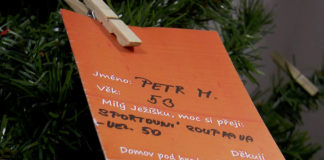 Jméno: PETR M.
Věk: 53
Milý Ježíšku, moc si přeji:
SPORTOVNÍ SOUPRAVA
-VEL. 50
Děkuji
Domov pod